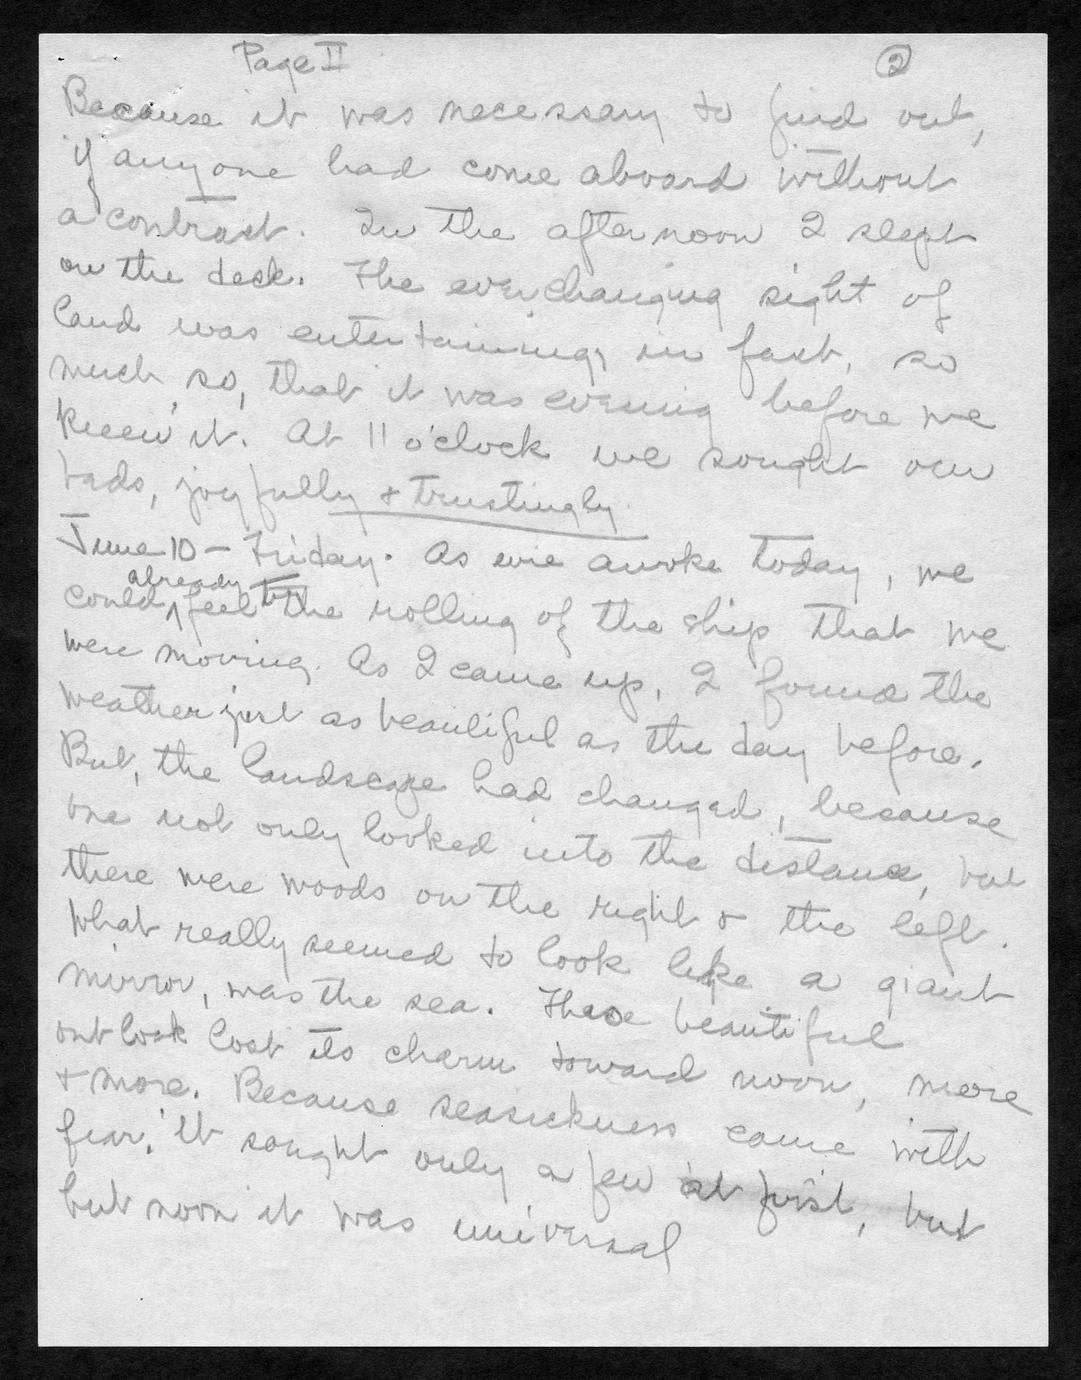 Page II ②
Because it was necessary to find out,
if anyone had come aboard without
a contract. In the afternoon I slept
on the deck. The everchanging sight of
land was entertaining, in fact, so
much so, that it was evening before we
knew it. At 11 o'clock we sought our
beds, joyfully + trustingly.
June 10 - Friday. As we awoke today, we
could already feel the rolling of the ship that we
were moving. As I came up, I found the
weather just as beautiful as the day before.
But, the landscape had changed, because
one not only looked into the distance, but
there were woods on the right & the left.
What really seemed to look like a giant
mirror, was the sea. These beautiful
outlook lost its charm toward noon, more
+ more. Because seasickness came with
fear, It sought only a few at first, but
but noon it was universal